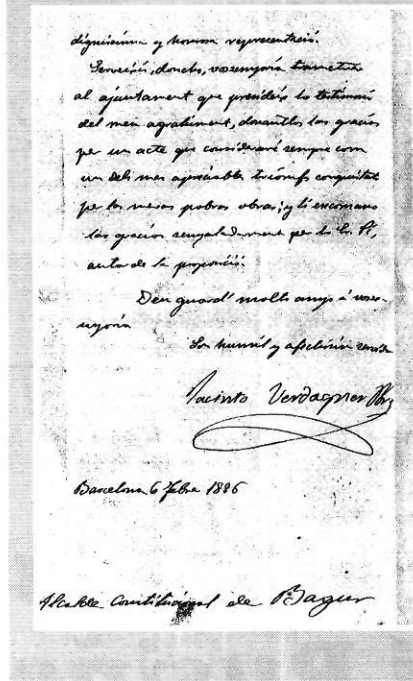 digníssima y honrosa representació.
Servescis, donchs, vosenyoría trametre
al ajuntament que presideix lo testimoni
del meu agrahiment, donantli las gracias
per un acte que consideraré sempre com
un dels mes apreciables triomfs conquistat
per las mevas pobras obras; y li encomano
las gracias senyaladament per lo Sr.
autor de la proposició.
Deu guard' molts anys á vose-
nyoría
Son humil y afectíssim servidor
Jacinto Verdaguer Pbre
Barcelona 6 Febre 1886
Alcalde Constitucional de Bagur